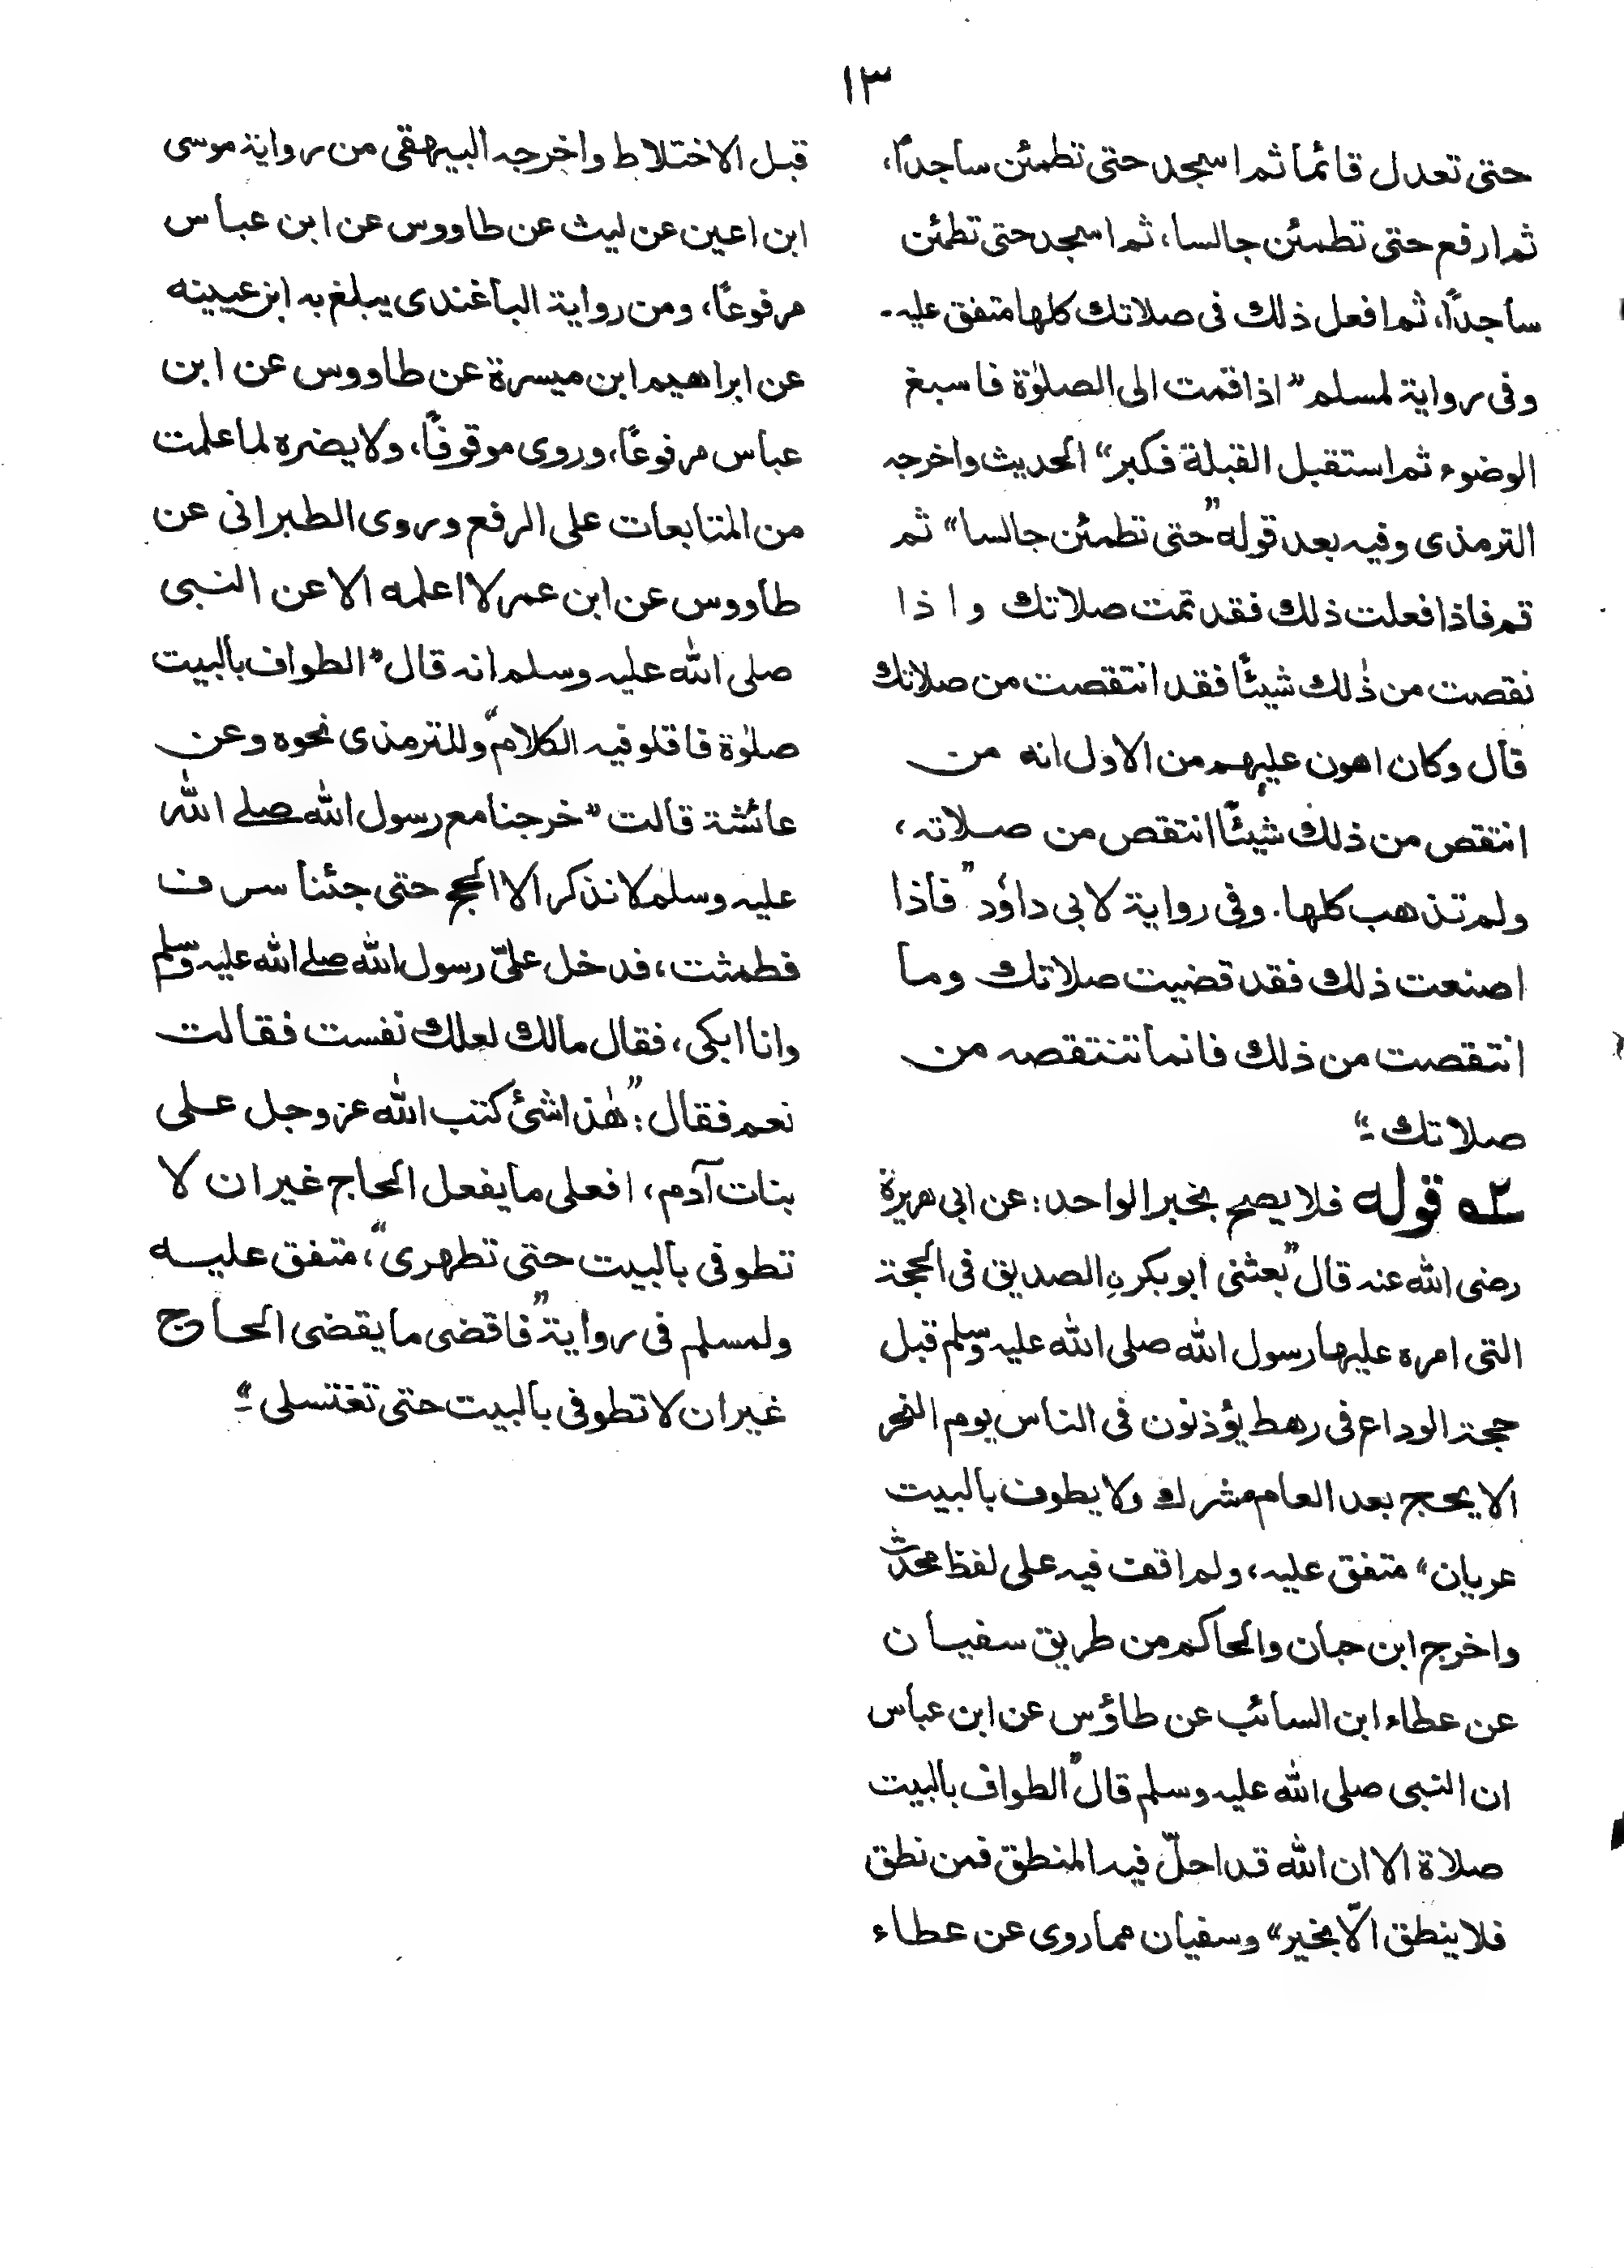 ١٣
حتى تعدل قائما ثم اسجد حتى تطمئن ساجداً،
ثم ارفع حتى تطمئن جالسا، ثم اسجد حتى تطمئن
ساجداً، ثم افعل ذلك فى صلاتك كلها متفق عليه۔
وفى رواية لمسلم ”اذا قمت الى الصلوٰة فاسبغ
الوضوء ثم استقبل القبلة فكبر“ الحديث واخرجه
الترمذى وفيه بعد قوله ”حتى تطمئن جالسا“ ثم
قم فاذا فعلت ذلك فقد تمت صلاتك واذا
نقصت من ذٰلك شيئًا فقد انتقصت من صلاتك
قال وكان اهون عليهم من الاول انه من
انتقص من ذلك شيئًا انتقص من صلاته،
ولم تذهب كلها. وفى رواية لابى داوٗد ”فاذا
اصنعت ذلك فقد قضيت صلاتك وما
انتقصت من ذلك فانما تنتقصه من
صلاتك ۔“
٢ه قوله فلا يصح بخبر الواحد: عن ابى هريرة
رضى الله عنه قال ”بعثنى ابو بكر ن الصديق فى الحجة
التى امره عليها رسول الله صلى الله عليه وسلم قبل
حجة الوداع فى رهط يؤذنون فى الناس يوم النحر
الا يحج بعد العام مشرك ولا يطوف بالبيت
عريان“ متفق عليه، ولم اقف فيه على لفظ محدث
واخرج ابن حبان والحاكم من طريق سفيان
عن عطاء ابن السائب عن طاؤس عن ابن عباس
ان النبى صلى الله عليه وسلم قال ”الطواف بالبيت
صلاة الا ان الله قد احلّ فيه المنطق فمن نطق
فلا ينطق الّا بخير“ وسفيان مما روى عن عطاء
قبل الاختلاط واخرجه البيهقى من رواية موسى
ابن اعين عن ليث عن طاووس عن ابن عباس
مرفوعًا، ومن رواية الباغندى يبلغ به ابن عيينه
عن ابراهيم ابن ميسرة عن طاووس عن ابن
عباس مرفوعًا، وروى موقوفًا، ولا يضره لما علمت
من المتابعات على الرفع وروى الطبرانى عن
طاووس عن ابن عمر لا اعلمه الا عن النبى
صلى الله عليه وسلم انه قال ”الطواف بالبيت
صلوٰة فاقلو فيه الكلام“ وللترمذى نحوه وعن
عائشة قالت ”خرجنا مع رسول الله صلے الله
عليه وسلم لا نذكر الا الحج حتى جئنا سرف
فطمثت، فدخل علىّ رسول الله صلے الله عليه وسلم
وانا ابكى، فقال مالك لعلك نفست فقالت
نعم فقال: ”هٰذا شئ كتب الله عز وجل على
بنات آدم، افعلى ما يفعل الحاج غير ان لا
تطوفى بالبيت حتى تطهرى“، متفق عليه
ولمسلم فى رواية ”فاقضى ما يقضى الحاج
غير ان لا تطوفى بالبيت حتى تغتسلى ۔“